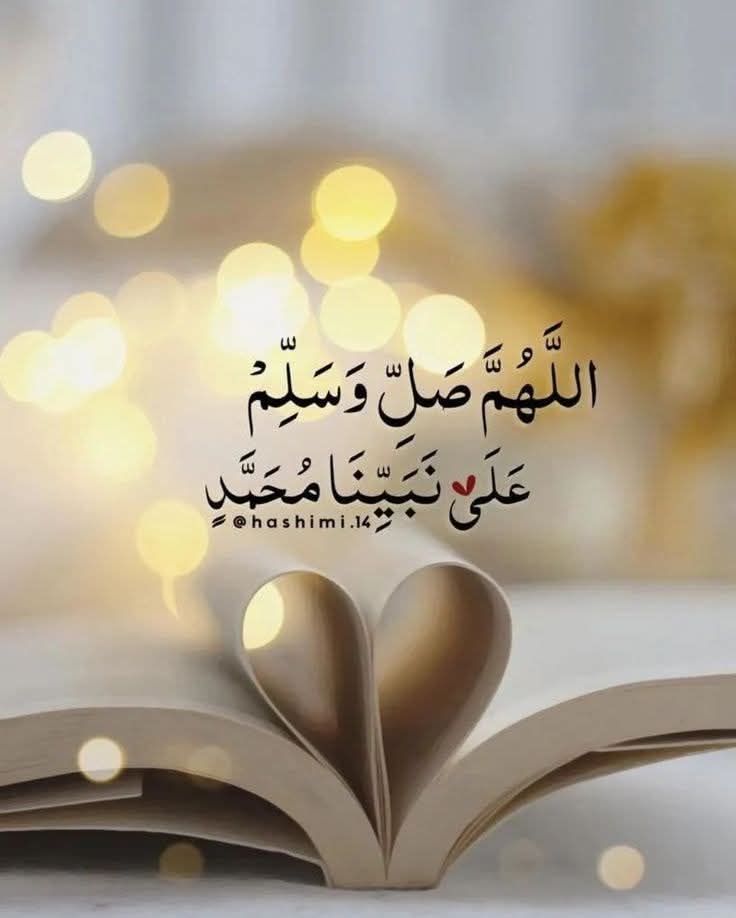 اللَّهُمَّ صَلِّ وَسَلِّمْ
عَلَىٰ نَبَيِّنَا مُحَمَّدٍ
@hashimi.14